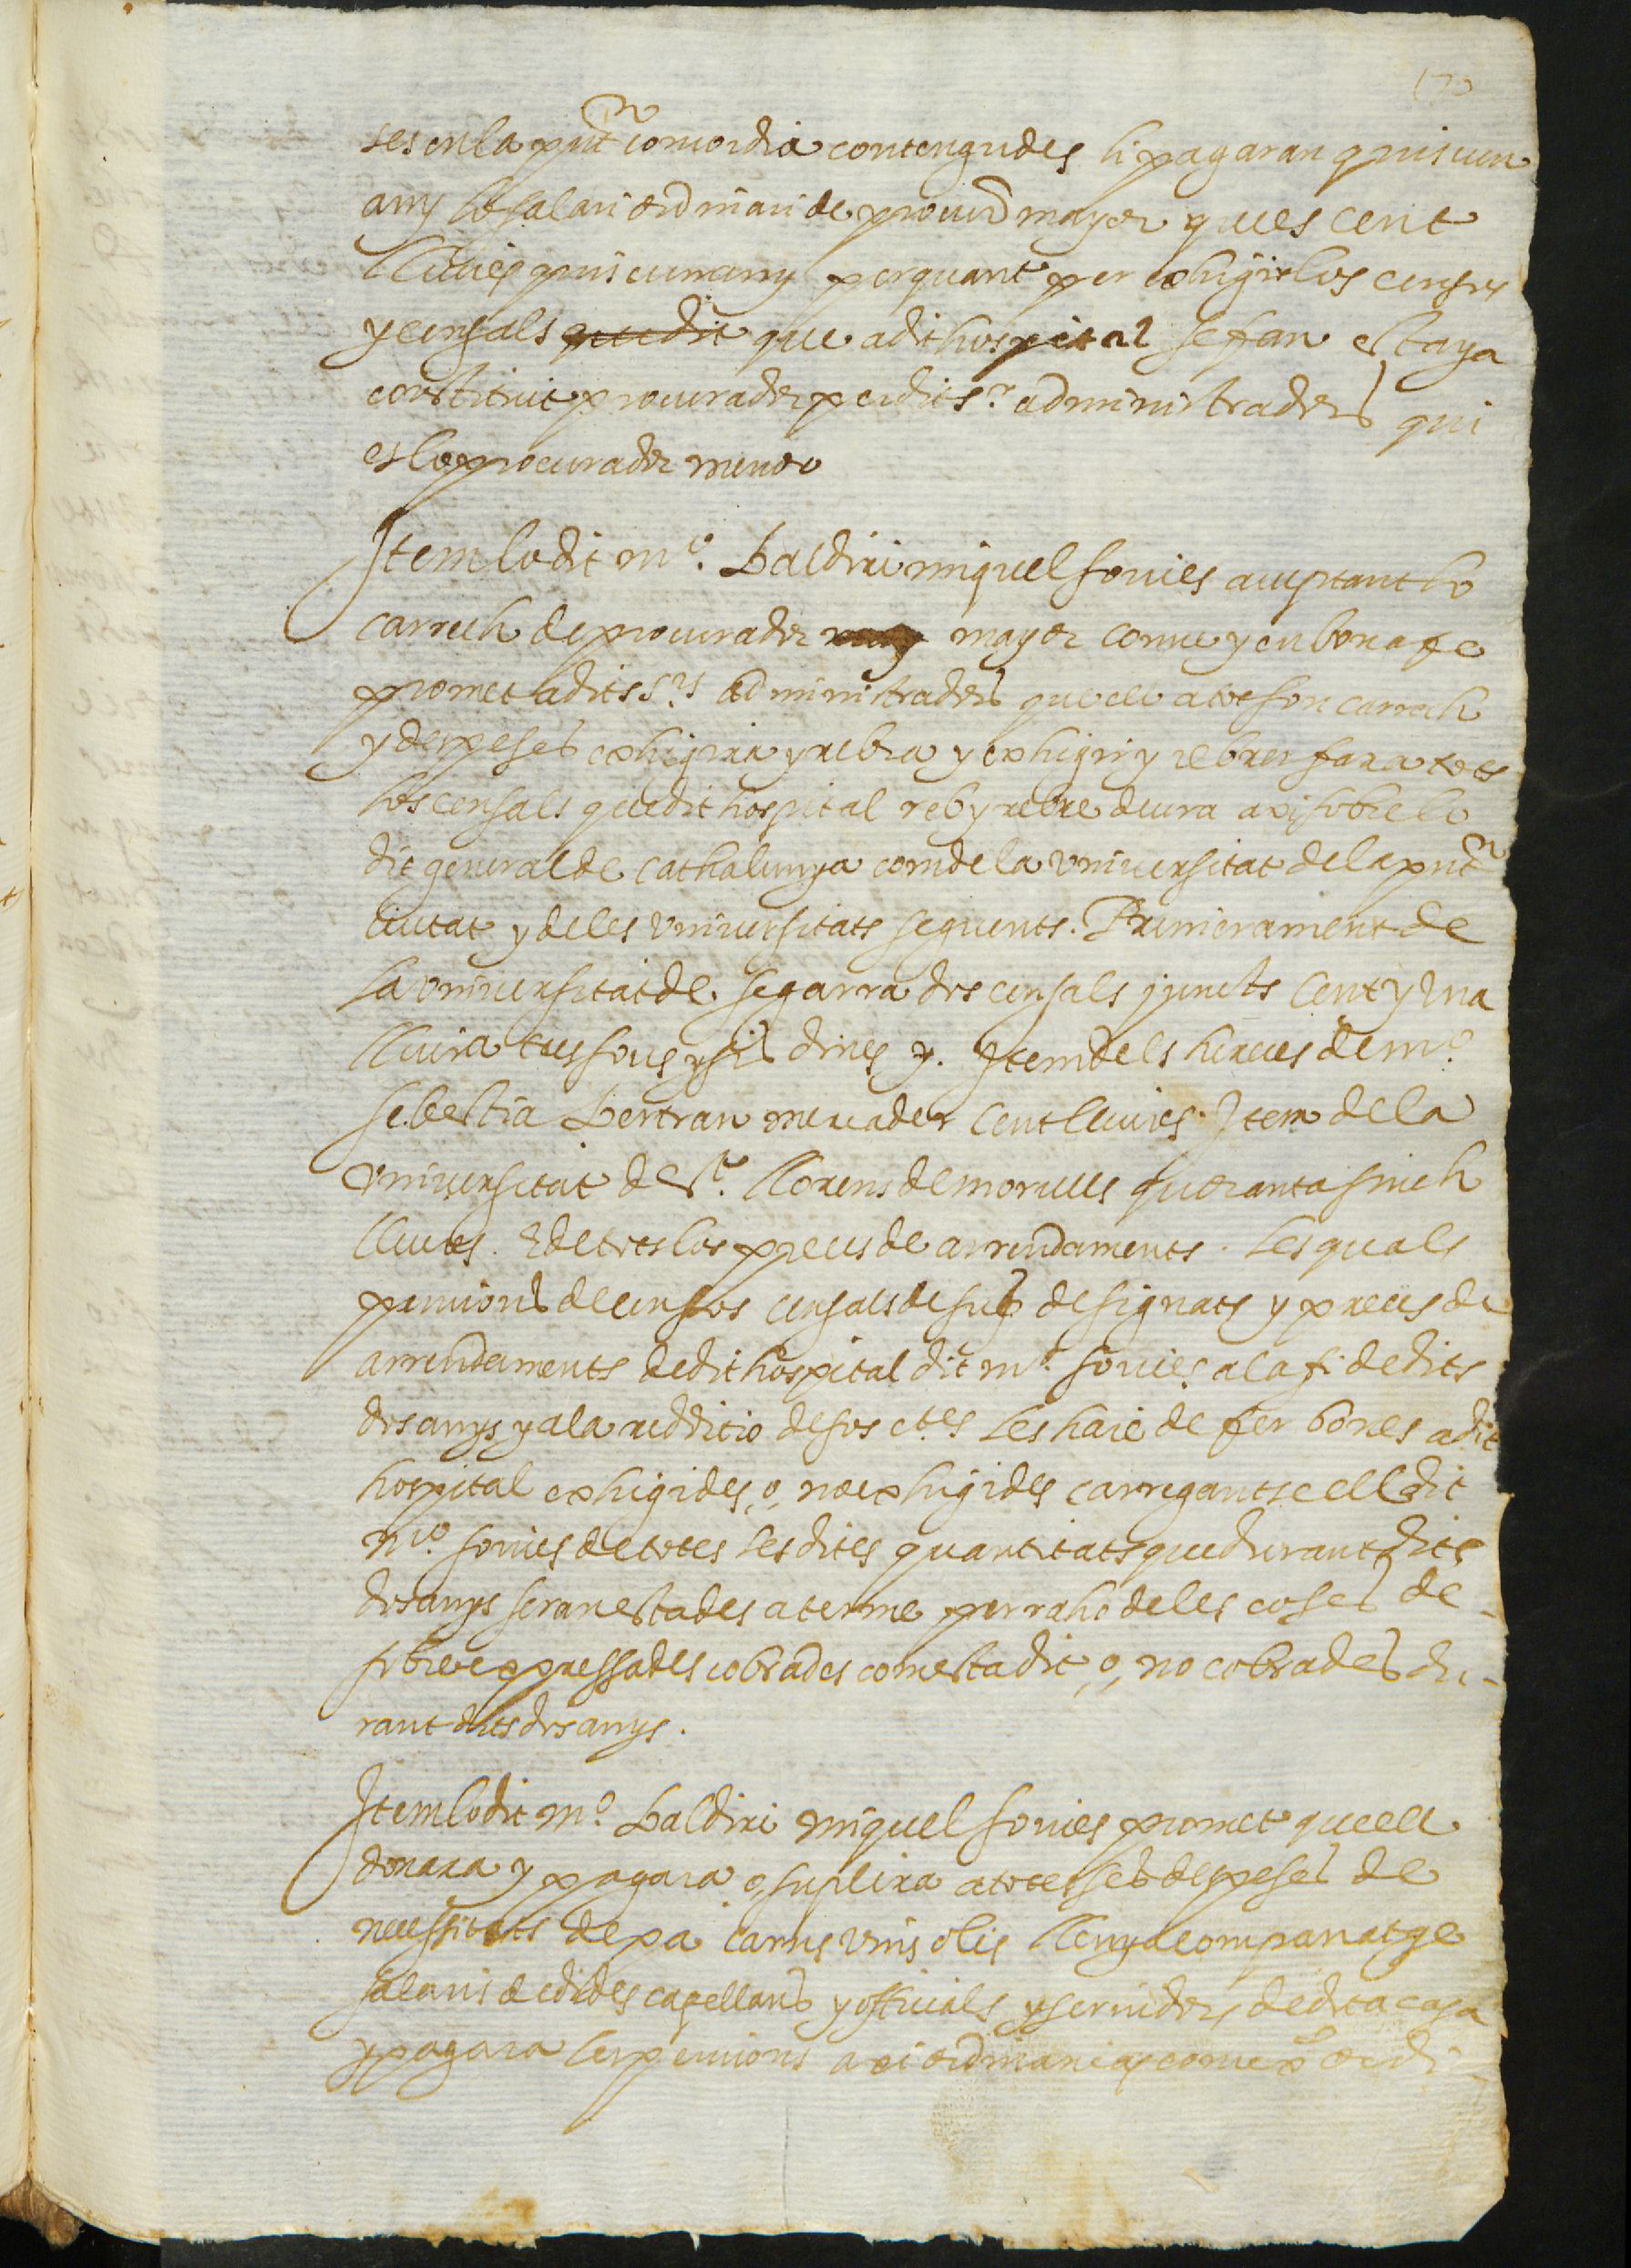 170
ses en la pnt concordia contengudes li pagaran quiscun
any lo salari ordinari de procurador mayor que es cent
lliures quiscun any per quant per exhigir los censos
y censals quedit que a dit hospital se fan esta ya
constituit procurador per dits s.rs administradors qui
es lo procurador menor
Item lo dit m.o Baldiri miquel sovies acceptant lo
carrech de procurador may mayor conve y en bona fe
promet a dits s.rs administradors que ell a tot son carrech
y despeses exhigira y rebra y exhigir y rebrer fara tots
los censals que dit hospital reb y rebre deura axi sobre lo
dit general de cathalunya com de la universitat de la pnt
ciutat y de les universitats seguents. Primerament de
la universitat de segarra dos censals juncts cent y una
lliura tres sous y sis dines y. Item dels hereus de m.o
sebestia Bertran mercader cent lliures. Item de la
universitat de s.t llorens de morunys quoranta sinch
lliures. E de tots los preus de arrendaments. Les quals
pensions de censos censals de sus designats y preus de
arrendaments de dit hospital dit m.o sovies a la fi de dits
dos anys y a la reddicio de sos c.tes les haie de fer bones a dit
hospital exhigides, o, no exhigides carregantse ell dit
m.o sovies de totes les dites quantitats que durant dits
dos anys seran estades a terme per raho de les coses de-
sobre expressades cobrades com esta dit, o, no cobrades du-
rant dits dos anys.
Item lo dit m.o Baldiri miquel sovies promet que ell
donara y pagara o, suplira a totes les despeses de
necessitats de pa carns vins olis llenya companatge
salaris de dides capellans y officials y servidors de dita casa
y pagara les pensions axi ordinaries com ex.ordi-